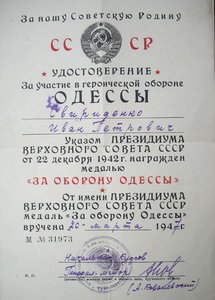 За нашу Советскую Родину
СС СР
УДОСТОВЕРЕНИЕ
За участие в героической обороне
ОДЕССЫ
Свириденко
Иван Петрович
Указом ПРЕЗИДИУМА
ВЕРХОВНОГО СОВЕТА СССР
от 22 декабря 1942 г. награжден
медалью
«ЗА ОБОРОНУ ОДЕССЫ»
От имени ПРЕЗИДИУМА
ВЕРХОВНОГО СОВЕТА СССР
медаль «За оборону Одессы»
вручена 20 марта 1947 г.
М № 31973
Начальник